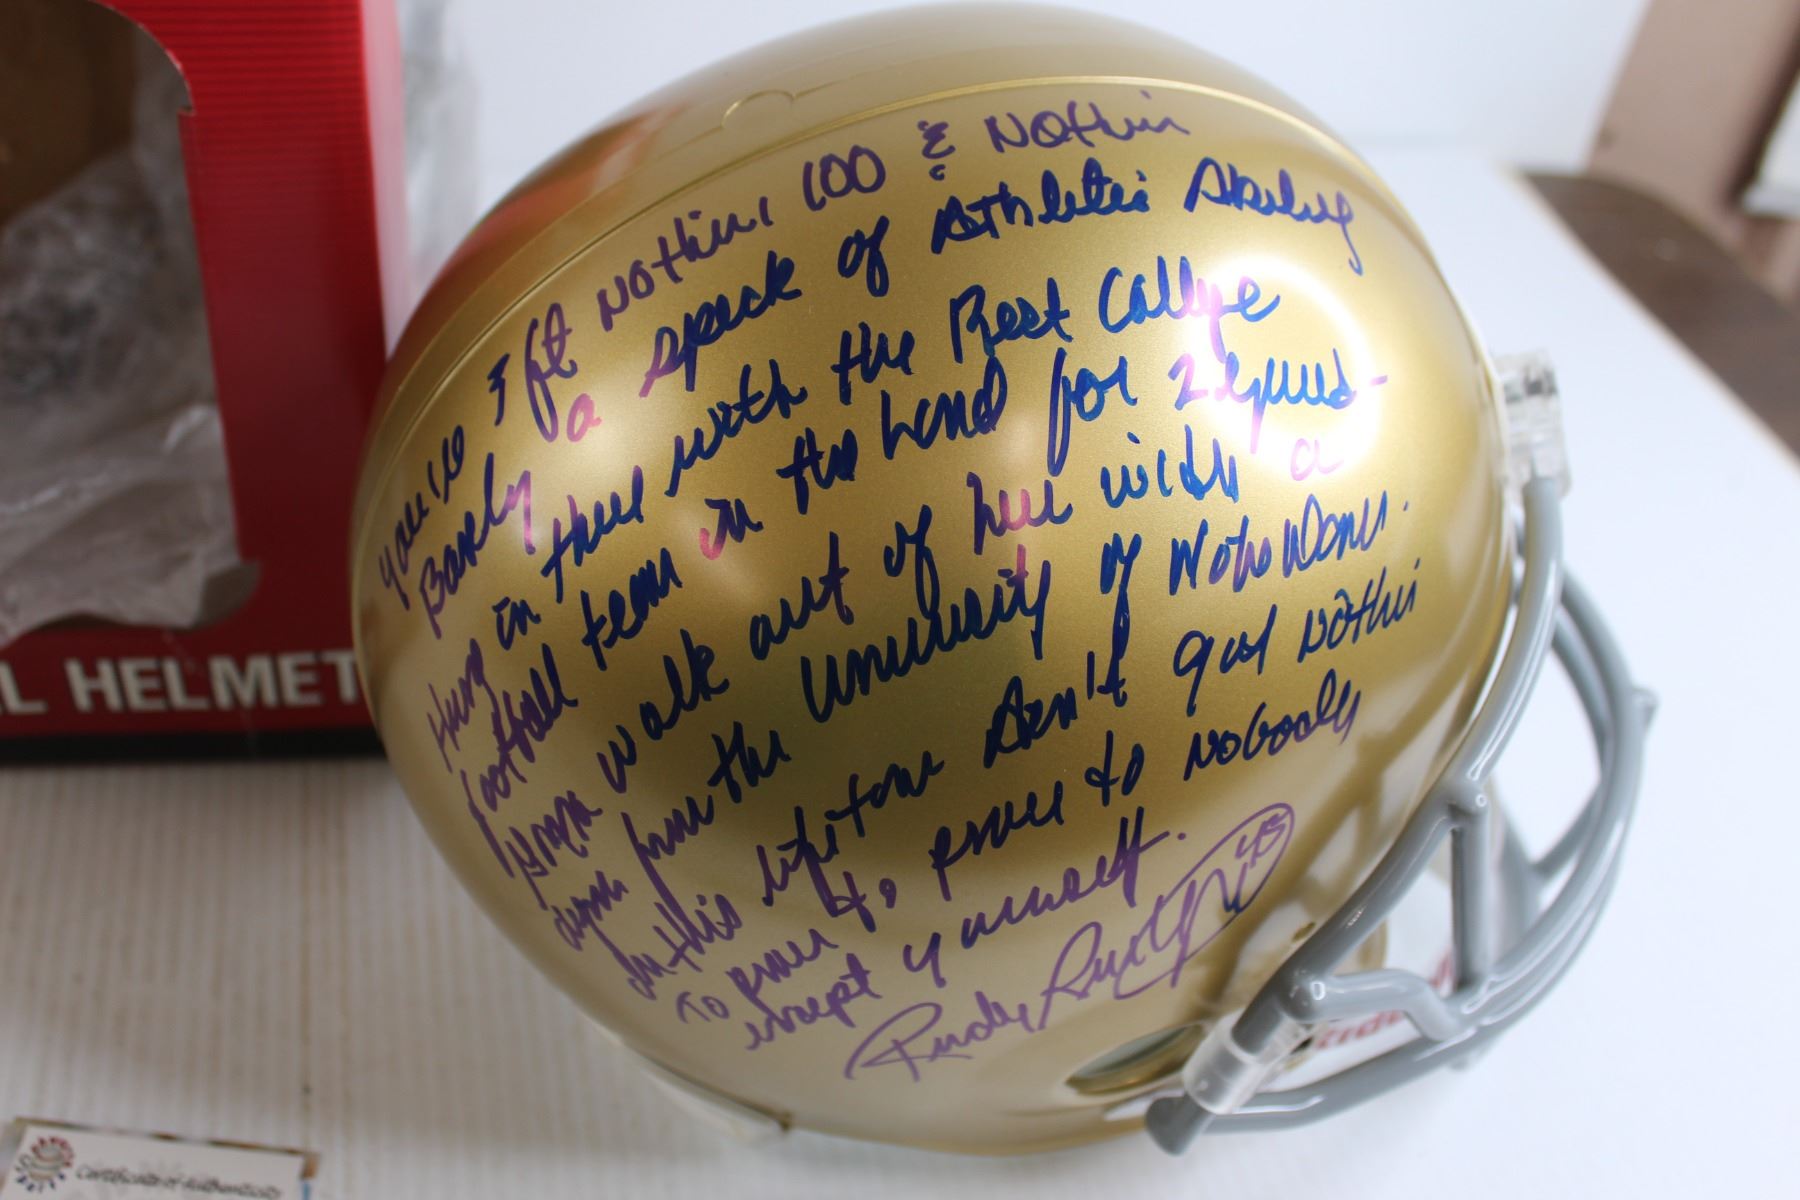 you're 5 ft Nothin, 100 & Nothin
Barely a speck of Athletic Ability
Hung in there with the Best College
football team in the land for 2 years -
gonna walk out of here with a
from the University of Notre Dame.
In this lifetime don't gotta Nothin
To prove to, prove to nobody
except yourself.
Rudy Ruettiger 45
L HELMET
Certificate of Authenticity